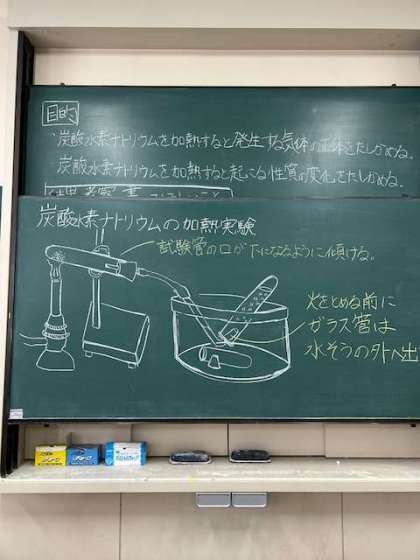 目的
・炭酸水素ナトリウムを加熱すると発生する気体の正体をたしかめる。
・炭酸水素ナトリウムを加熱すると起こる性質の変化をたしかめる。
炭酸水素ナトリウムの加熱実験
試験管の口が下になるように傾ける。
火をとめる前に
ガラス管は
水そうの外へ出